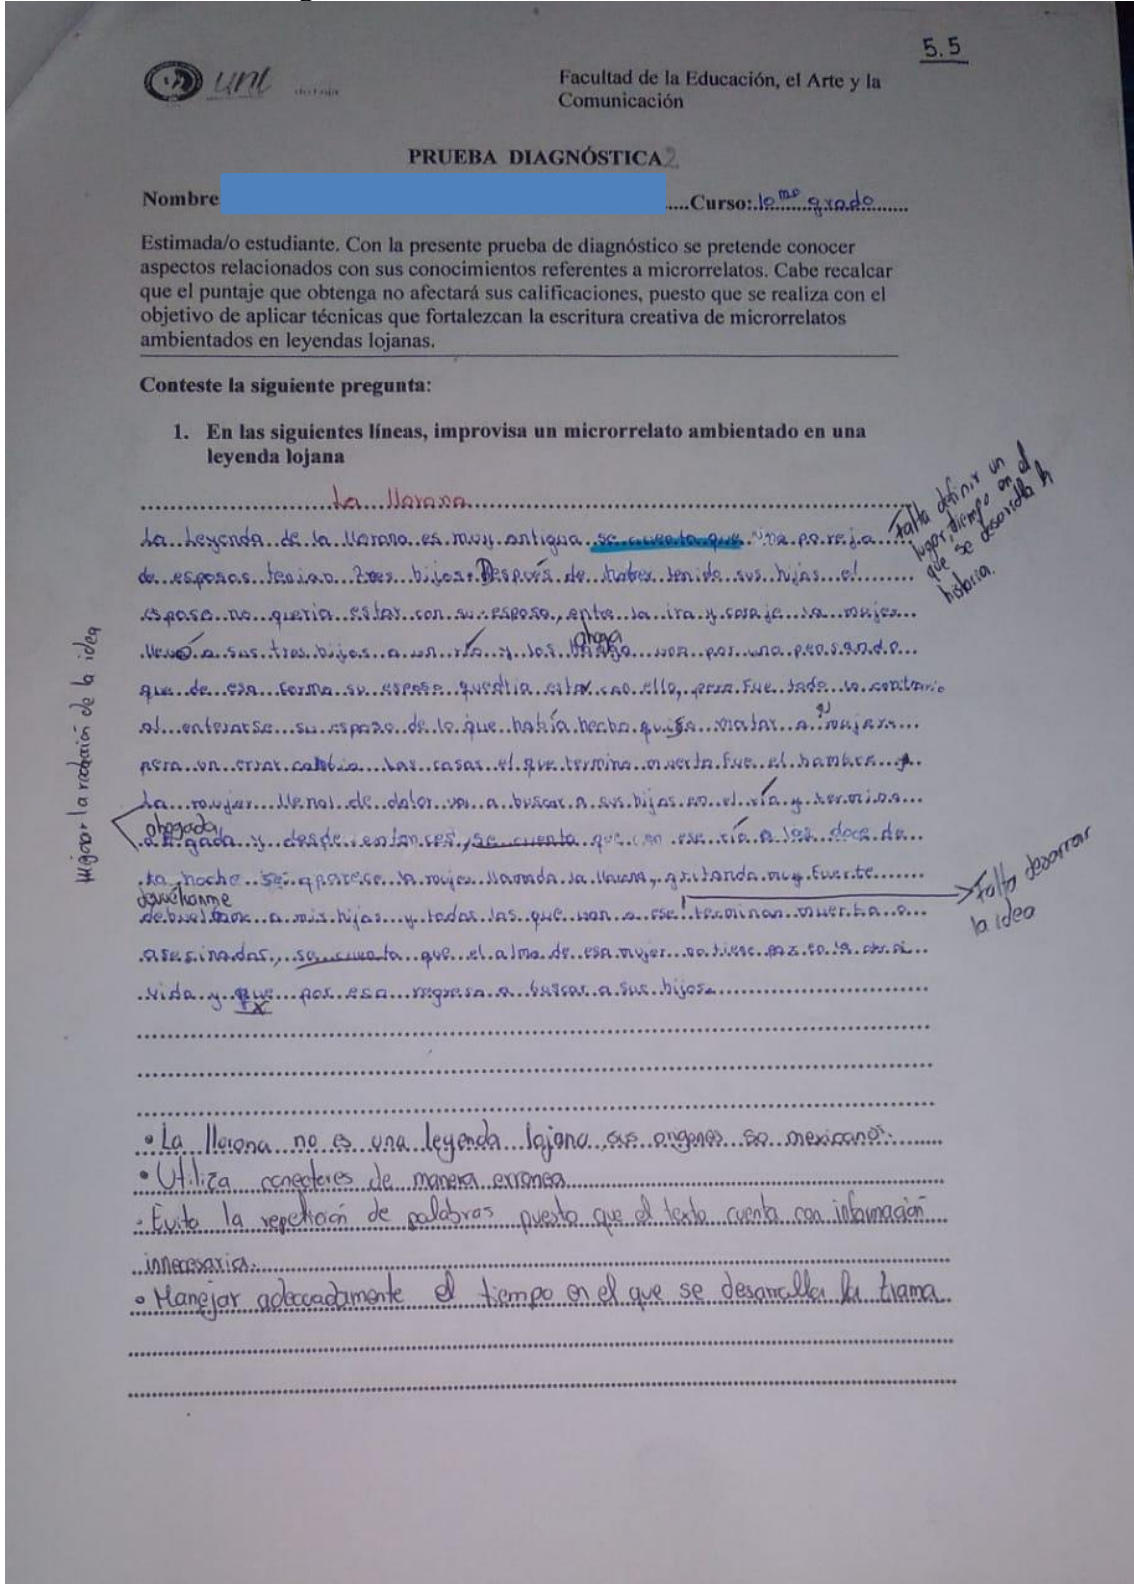 5.5
unl
Facultad de la Educación, el Arte y la
Comunicación
PRUEBA DIAGNÓSTICA 2
Nombre
Curso: 10mo grado
Estimada/o estudiante. Con la presente prueba de diagnóstico se pretende conocer
aspectos relacionados con sus conocimientos referentes a microrrelatos. Cabe recalcar
que el puntaje que obtenga no afectará sus calificaciones, puesto que se realiza con el
objetivo de aplicar técnicas que fortalezcan la escritura creativa de microrrelatos
ambientados en leyendas lojanas.
Conteste la siguiente pregunta:
1. En las siguientes líneas, improvisa un microrrelato ambientado en una
leyenda lojana
La llorona
La Leyenda de la llorona es muy antigua se cuenta que una pareja
de esposos tenian tres hijos. Después de haber tenido sus hijos el
esposo no queria estar con su esposa, entre la ira y coraje la mujer
llevó a sus tres hijos a un río y los ahoga uno por uno pensando
que de esa forma su esposo quedria estar con ella, pero fue todo lo contrario
al enterarse su esposo de lo que había hecho quiso matar a su mujer
pero un error cambio las cosas el que termino muerto fue el hombre
La mujer llena de dolor va a buscar a sus hijos en el río y termina
ahogada y desde entonces, se cuenta que en ese río a las doce de
la noche se aparese la mujer llamada la llorona, gritando muy fuerte
devuélvanme a mis hijos y todos los que van a ese terminan muerto o
asesinados, se cuenta que el alma de esa mujer no tiene paz en la otra
vida y que por eso regresa a buscar a sus hijos.
Falta definir un
lugar, tiempo en el
que se desarrolla la
historia.
Mejorar la redacción de la idea
Falta desarrollar
la idea
• La llorona no es una leyenda lojana, sus origenes so mexicanos.
• Utiliza conectores de manera erronea
• Evita la repetición de palabras puesto que el texto cuenta con información
innecesaria.
• Manejar adecuadamente el tiempo en el que se desarrolla la trama